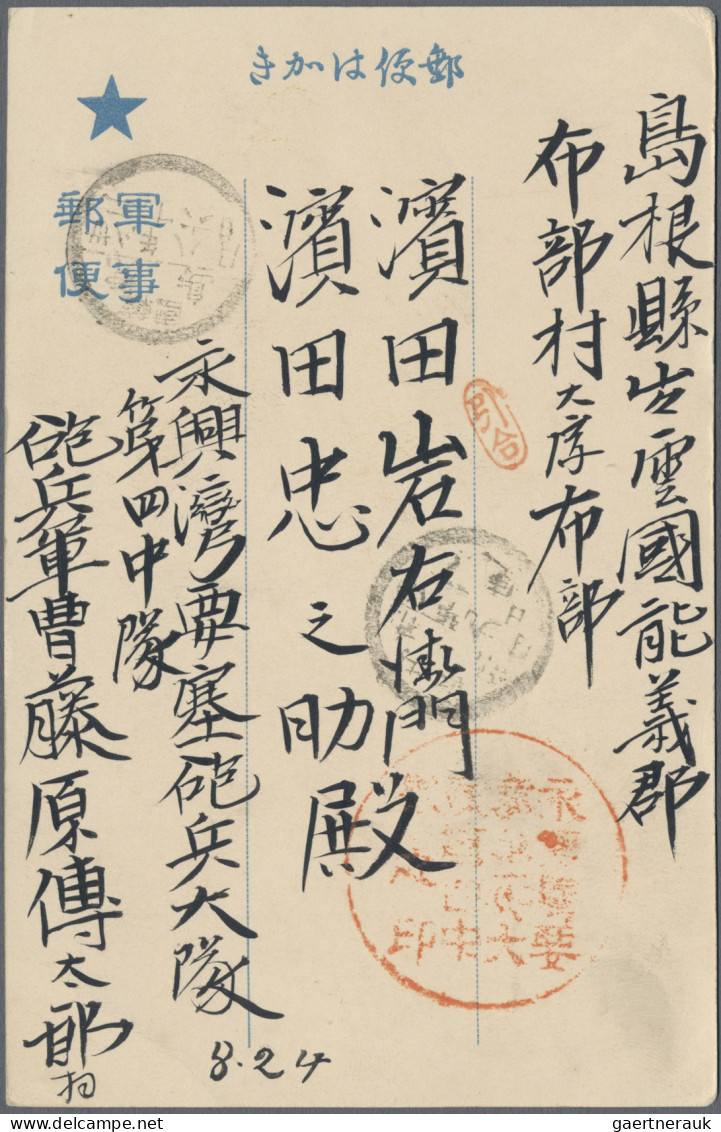 きかは便郵
島根縣出雲國能義郡
布部村大字布部
濱田岩右衛門殿
濱田忠之助殿
軍事
郵便
永興灣要塞砲兵大隊
第四中隊
砲兵軍曹藤原傳太郎
8.24
gaertnerauk